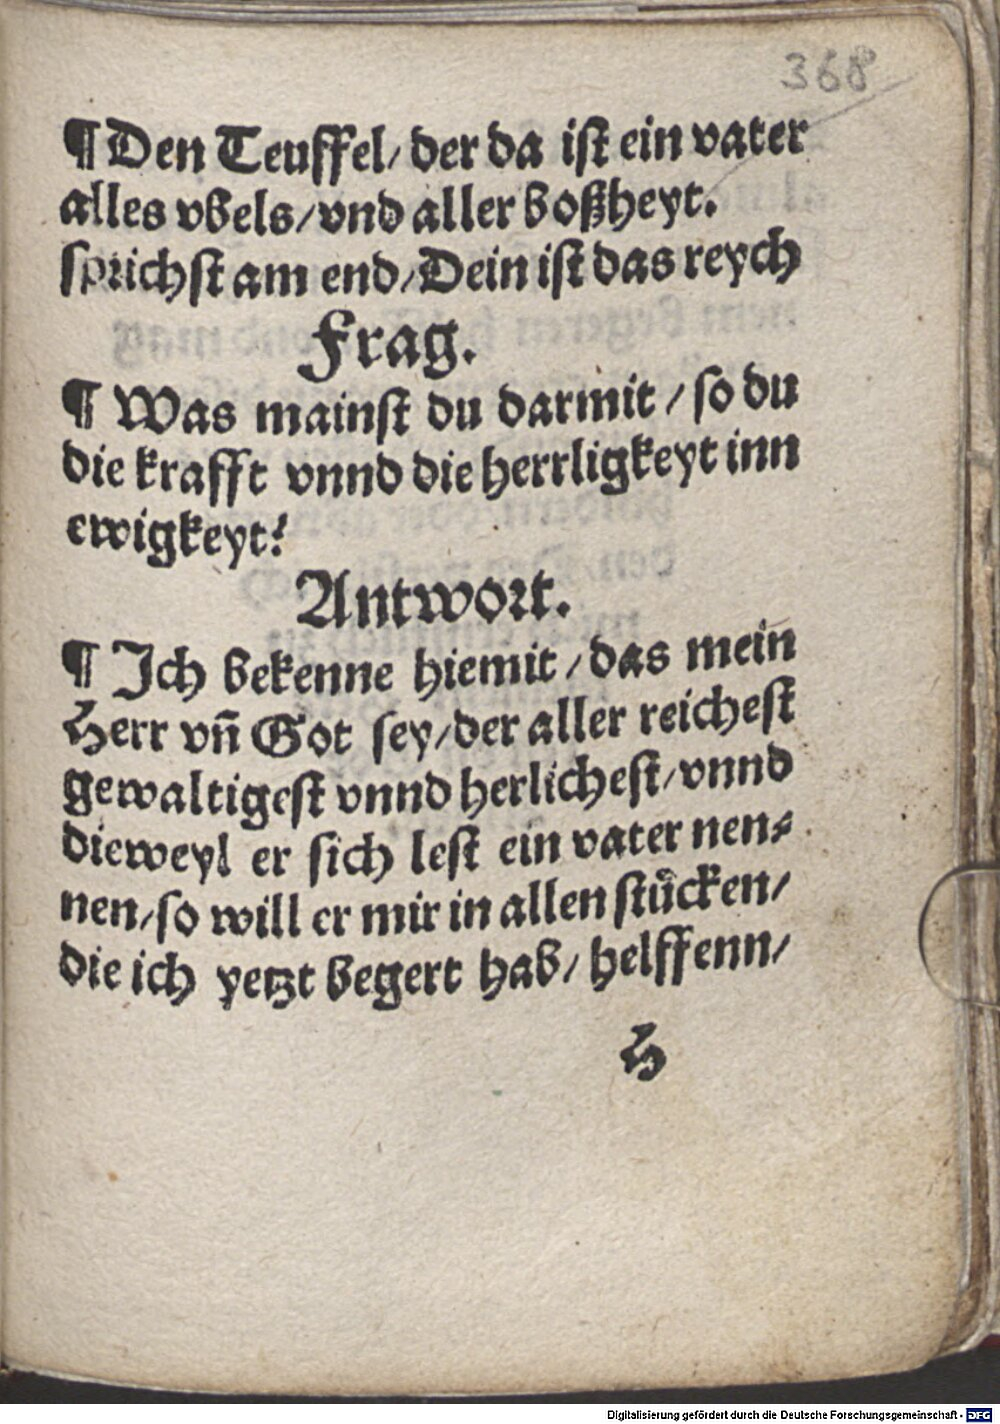 368
¶ Den Teuffel / der da ist ein vater
alles vbels / vnd aller boßheyt.
sprichst am end / Dein ist das reych
Frag.
¶ Was mainst du darmit / so du
die krafft vnnd die herrligkeyt inn
ewigkeyt?
Antwort.
¶ Ich bekenne hiemit / das mein
Herr vñ Got sey / der aller reichest
gewaltigest vnnd herlichest / vnnd
dieweyl er sich lest ein vater nen⸗
nen / so will er mir in allen stuͤcken /
die ich yetzt begert hab / helffenn /
H
Digitalisierung gefördert durch die Deutsche Forschungsgemeinschaft - DFG